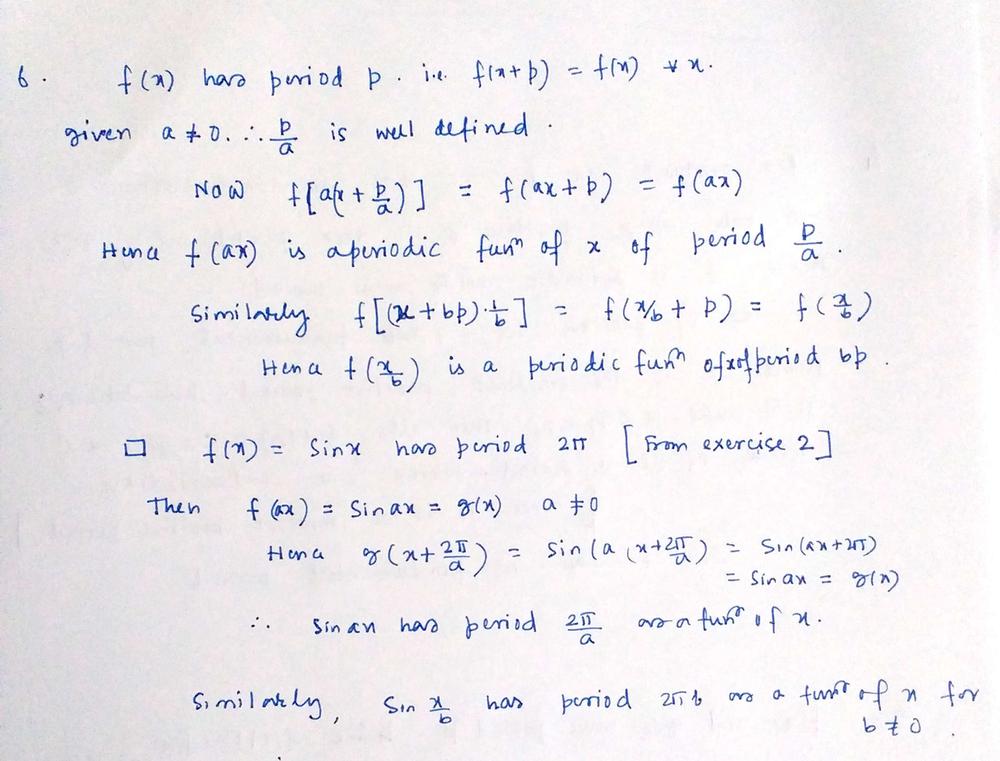 6. f(x) has period p. i.e. f(x+p) = f(x) ∀ x.
given a ≠ 0. ∴ p/a is well defined.
Now f[a(x + p/a)] = f(ax + p) = f(ax)
Hence f(ax) is a periodic funⁿ of x of period p/a.
Similarly f[(x + bp)·1/b] = f(x/b + p) = f(x/b)
Hence f(x/b) is a periodic funⁿ of x of period bp.
□ f(x) = Sinx has period 2π [From exercise 2]
Then f(ax) = Sin ax = g(x) a ≠ 0
Hence g(x + 2π/a) = Sin(a(x + 2π/a) = Sin(ax + 2π)
= Sin ax = g(x)
∴ Sin ax has period 2π/a as a funⁿ of x.
Similarly, Sin x/b has period 2πb as a funⁿ of x for
b ≠ 0.